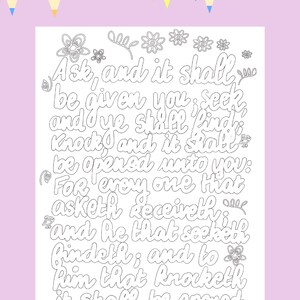 Ask, and it shall
be given you; seek
and ye shall find;
knock, and it shall
be opened unto you:
For every one that
asketh receiveth;
and he that seeketh
findeth; and to
him that knocketh
it shall be